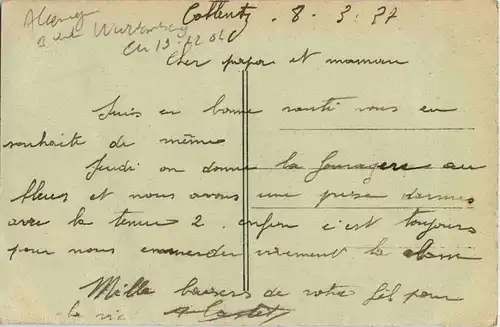 Coblentz. 8. 3. 27
Cher papa et maman
Suis en bonne santé vous en
souhaite de même
Jeudi on donne la fouragere au
bleus et nous avons une prise darmes
avec la tenue 2. enfin c'est toujours
pour nous emmerder vivement la
Mille baisers de votre fil pour
la vie